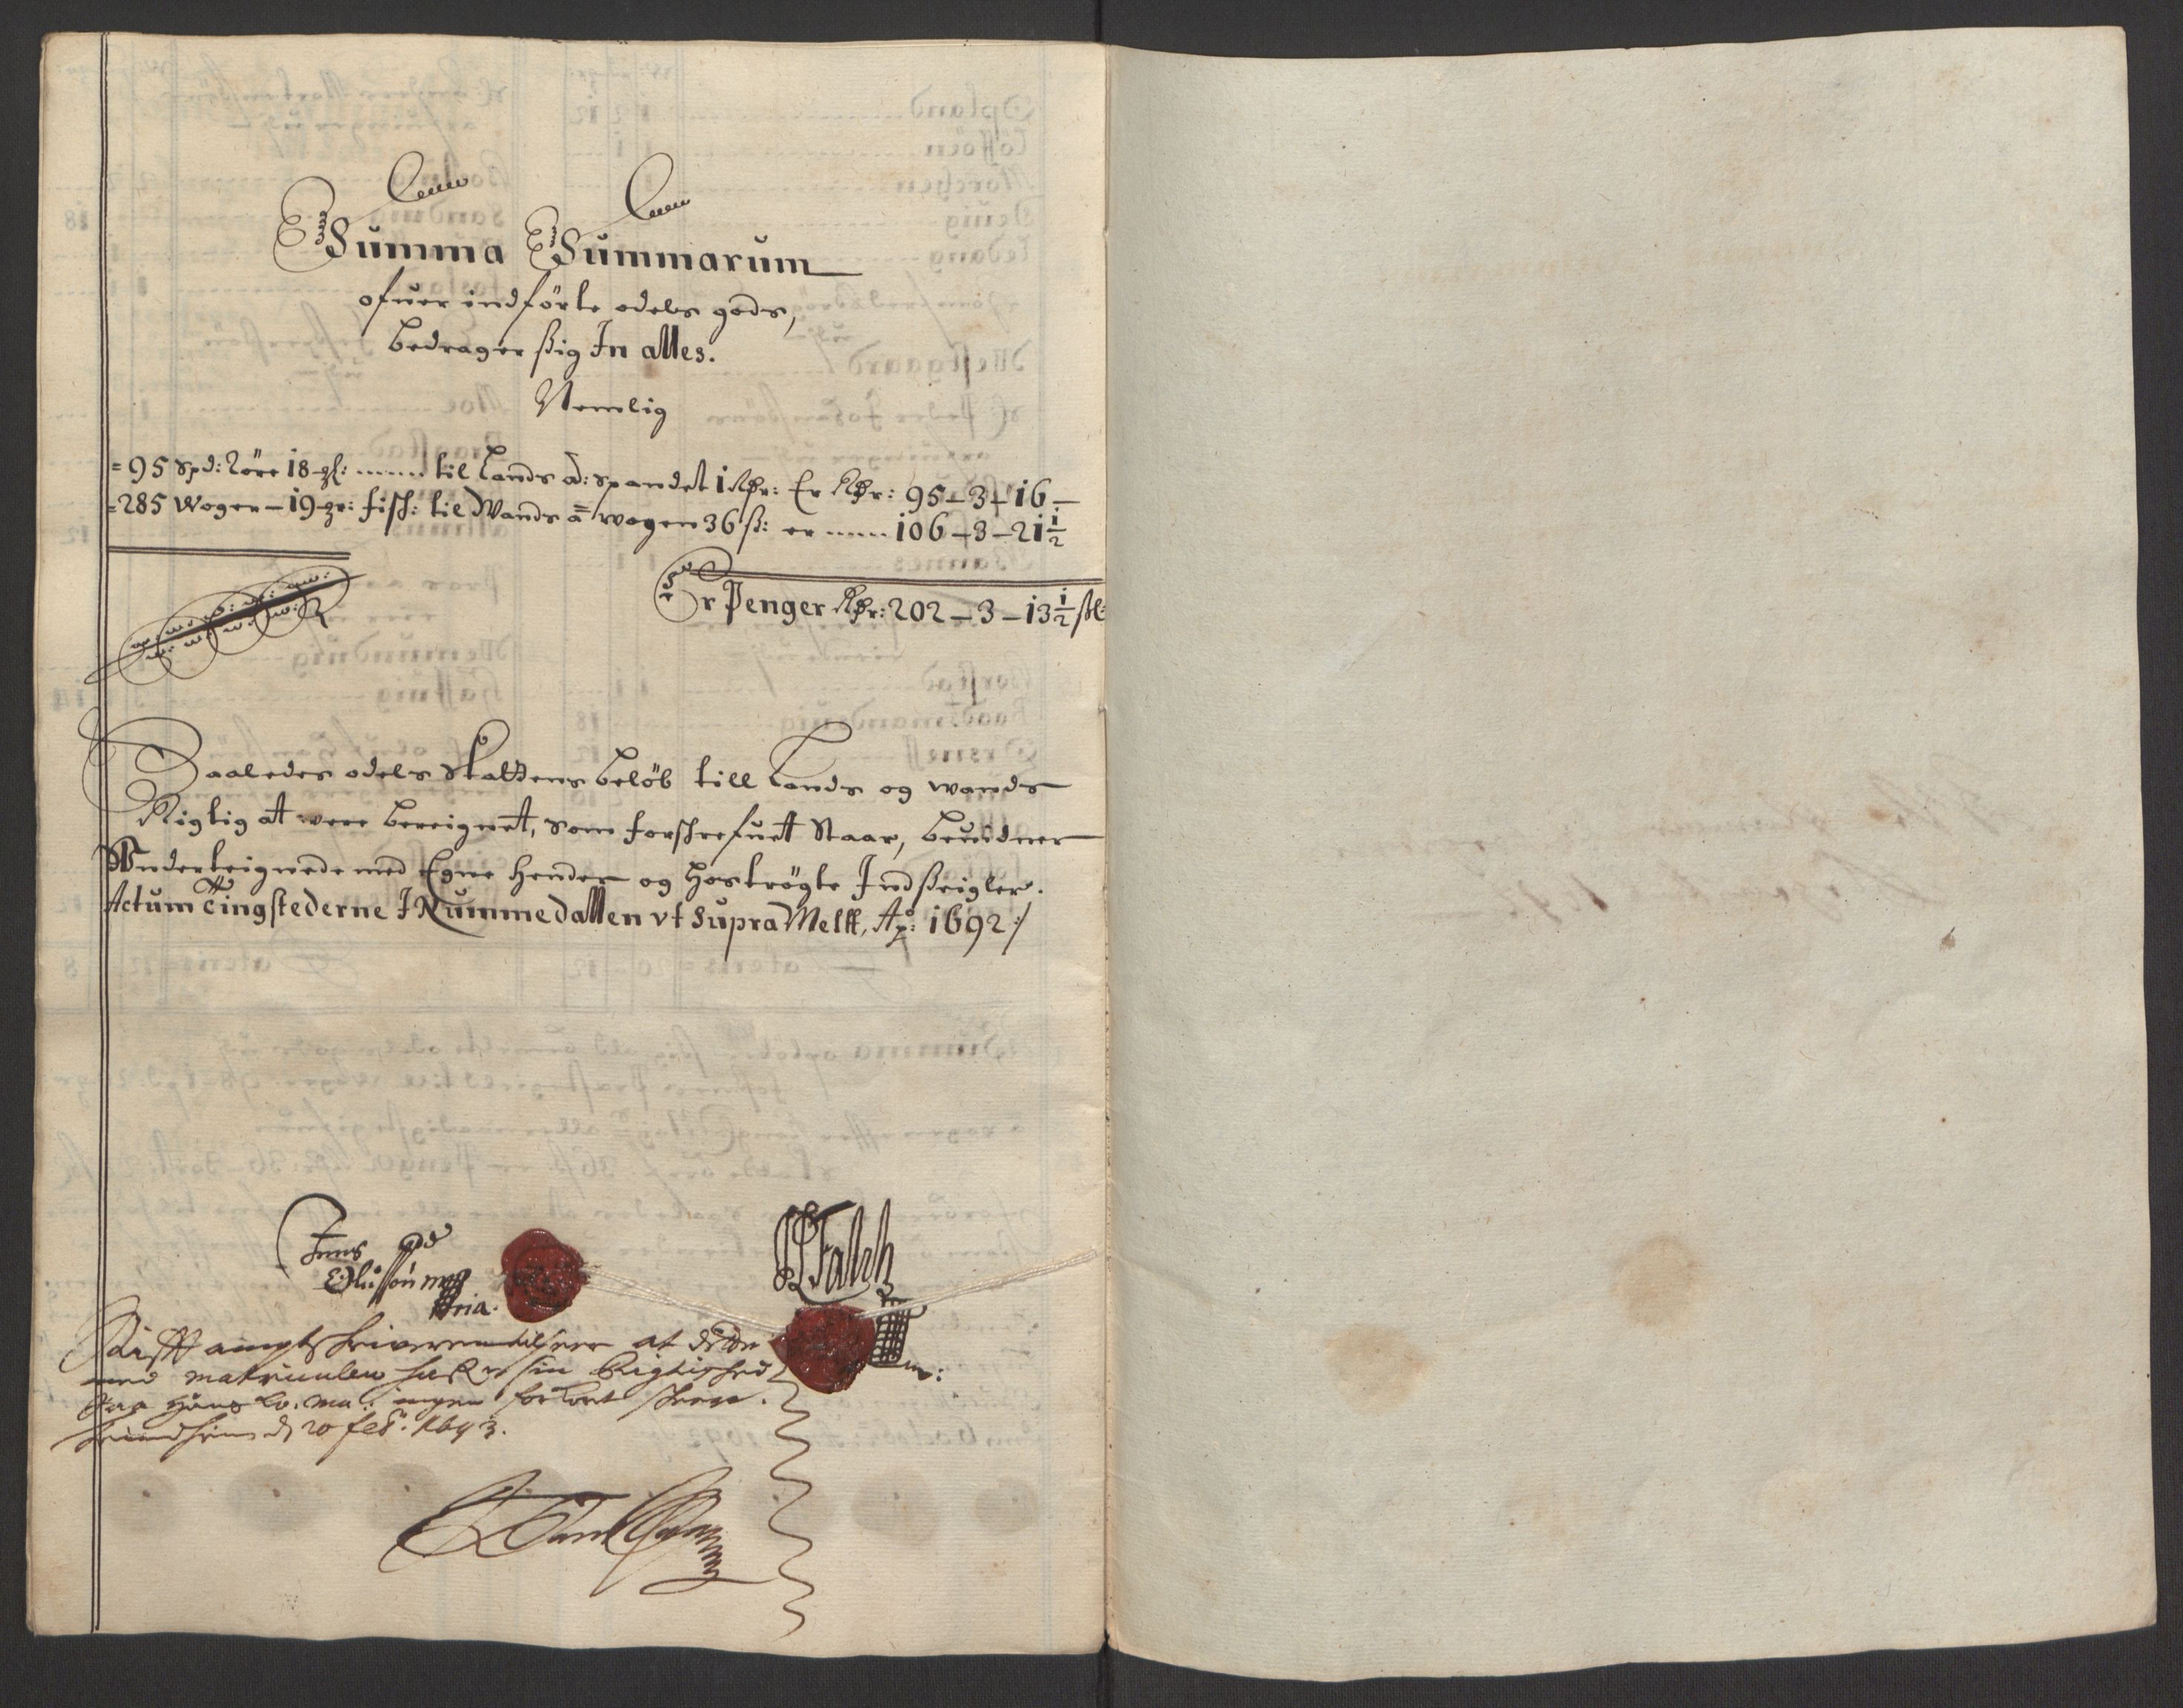 Summa Summarum
ofuer indförte odels gods,
bedrager sig In alles.
Nemlig
=95 spd: 2öre 18 gl: ...... til Lands a: spandet 1 Rdr: Er Rdr: 95 – 3 – 16 –
=285 Woger – 19 gr: fisch: til Wands a wogen 36 ß: er ...... 106 – 3 – 21½
Er Penger Rdr: 202 – 3 – 13½ ßl:
Saaledes odels Skattens beløb till Lands og wands
Rigtig at were bereignet, som forschrefuett Staar, beuidner
Wnderteignede med Egne Hender og Hoströgte Indseigler.
Actum Tingstederne I Nummedallen vt Supra Melt, Ao: 1692 /
Jens
Olufsön mp
pria.
Falch
m:
at dette
med matriculen sin Rigtighed
Hans ingen for kort skeer.
d 20 feb: 1693.